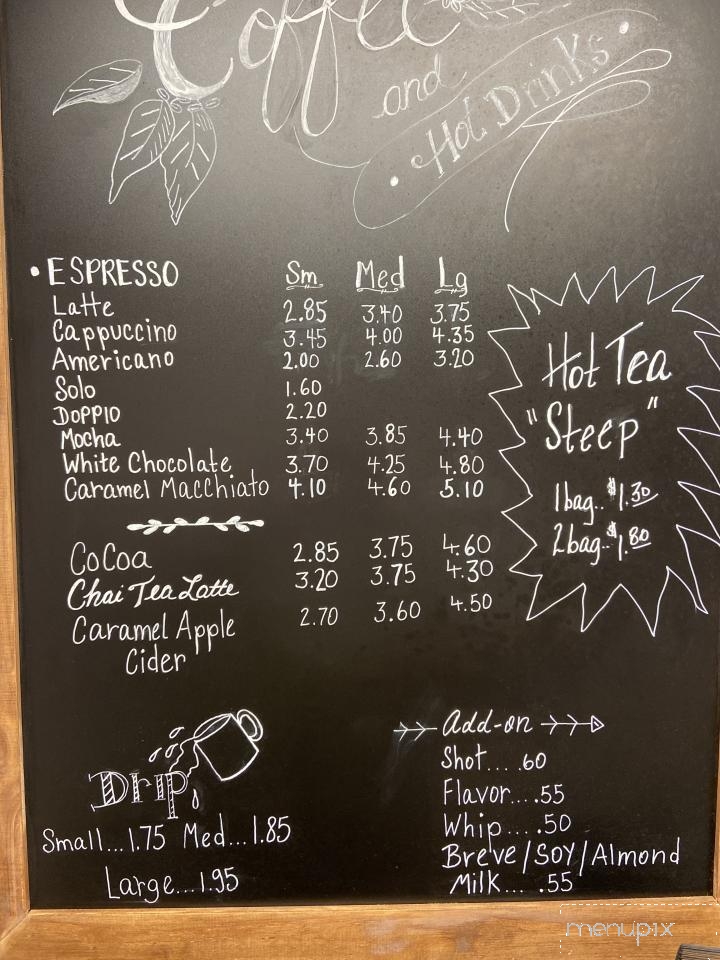 Coffee
and
• Hot Drinks •
• ESPRESSO Sm Med Lg
Latte 2.85 3.40 3.75
Cappuccino 3.45 4.00 4.35
Americano 2.00 2.60 3.20
Solo 1.60
DOPPIO 2.20
Mocha 3.40 3.85 4.40
White Chocolate 3.70 4.25 4.80
Caramel Macchiato 4.10 4.60 5.10
CoCoa 2.85 3.75 4.60
Chai Tea Latte 3.20 3.75 4.30
Caramel Apple 2.70 3.60 4.50
Cider
Hot Tea
"Steep"
1 bag..$1.30
2 bag..$1.80
Drip
Small...1.75 Med...1.85
Large...1.95
Add-on
Shot.... .60
Flavor... .55
Whip.... .50
Breve/SOY/Almond
Milk.... .55
menupix